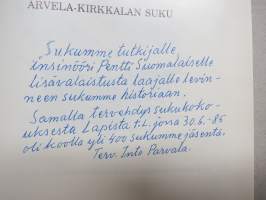 ARVELA-KIRKKALAN SUKU
Sukumme tutkijalle,
insinööri Pentti Suomalaiselle
lisävalaistusta laajalle levin-
neen sukumme historiaan.
Samalla tervehdys sukuko-
kouksesta Lapista t.l. jossa 30.6.-85
oli koolla yli 400 sukumme jäsentä.
Terv. Into Parvala.